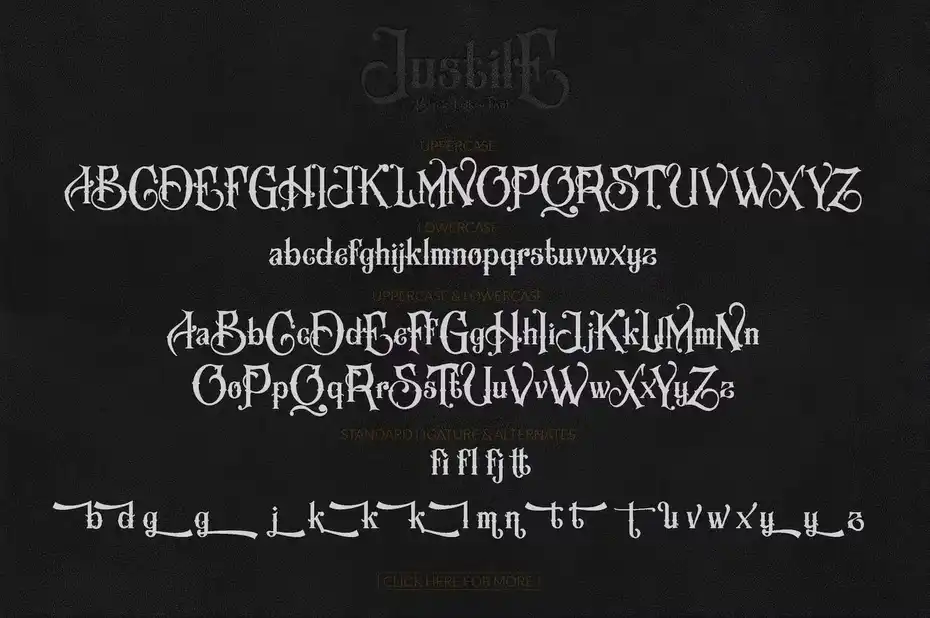 JustilE
UPPERCASE
ABCDEFGHIJKLMNOPQRSTUVWXYZ
LOWERCASE
abcdefghijklmnopqrstuvwxyz
UPPERCASE & LOWERCASE
AaBbCcDdEeFfGgHhIiJjKkLlMmNn
OoPpQqRrSsTtUuVvWwXxYyZz
STANDARD LIGATURE & ALTERNATES
fi fl fj tt
b d g g j k k k l m n t t t u v w x y y z
CLICK HERE FOR MORE